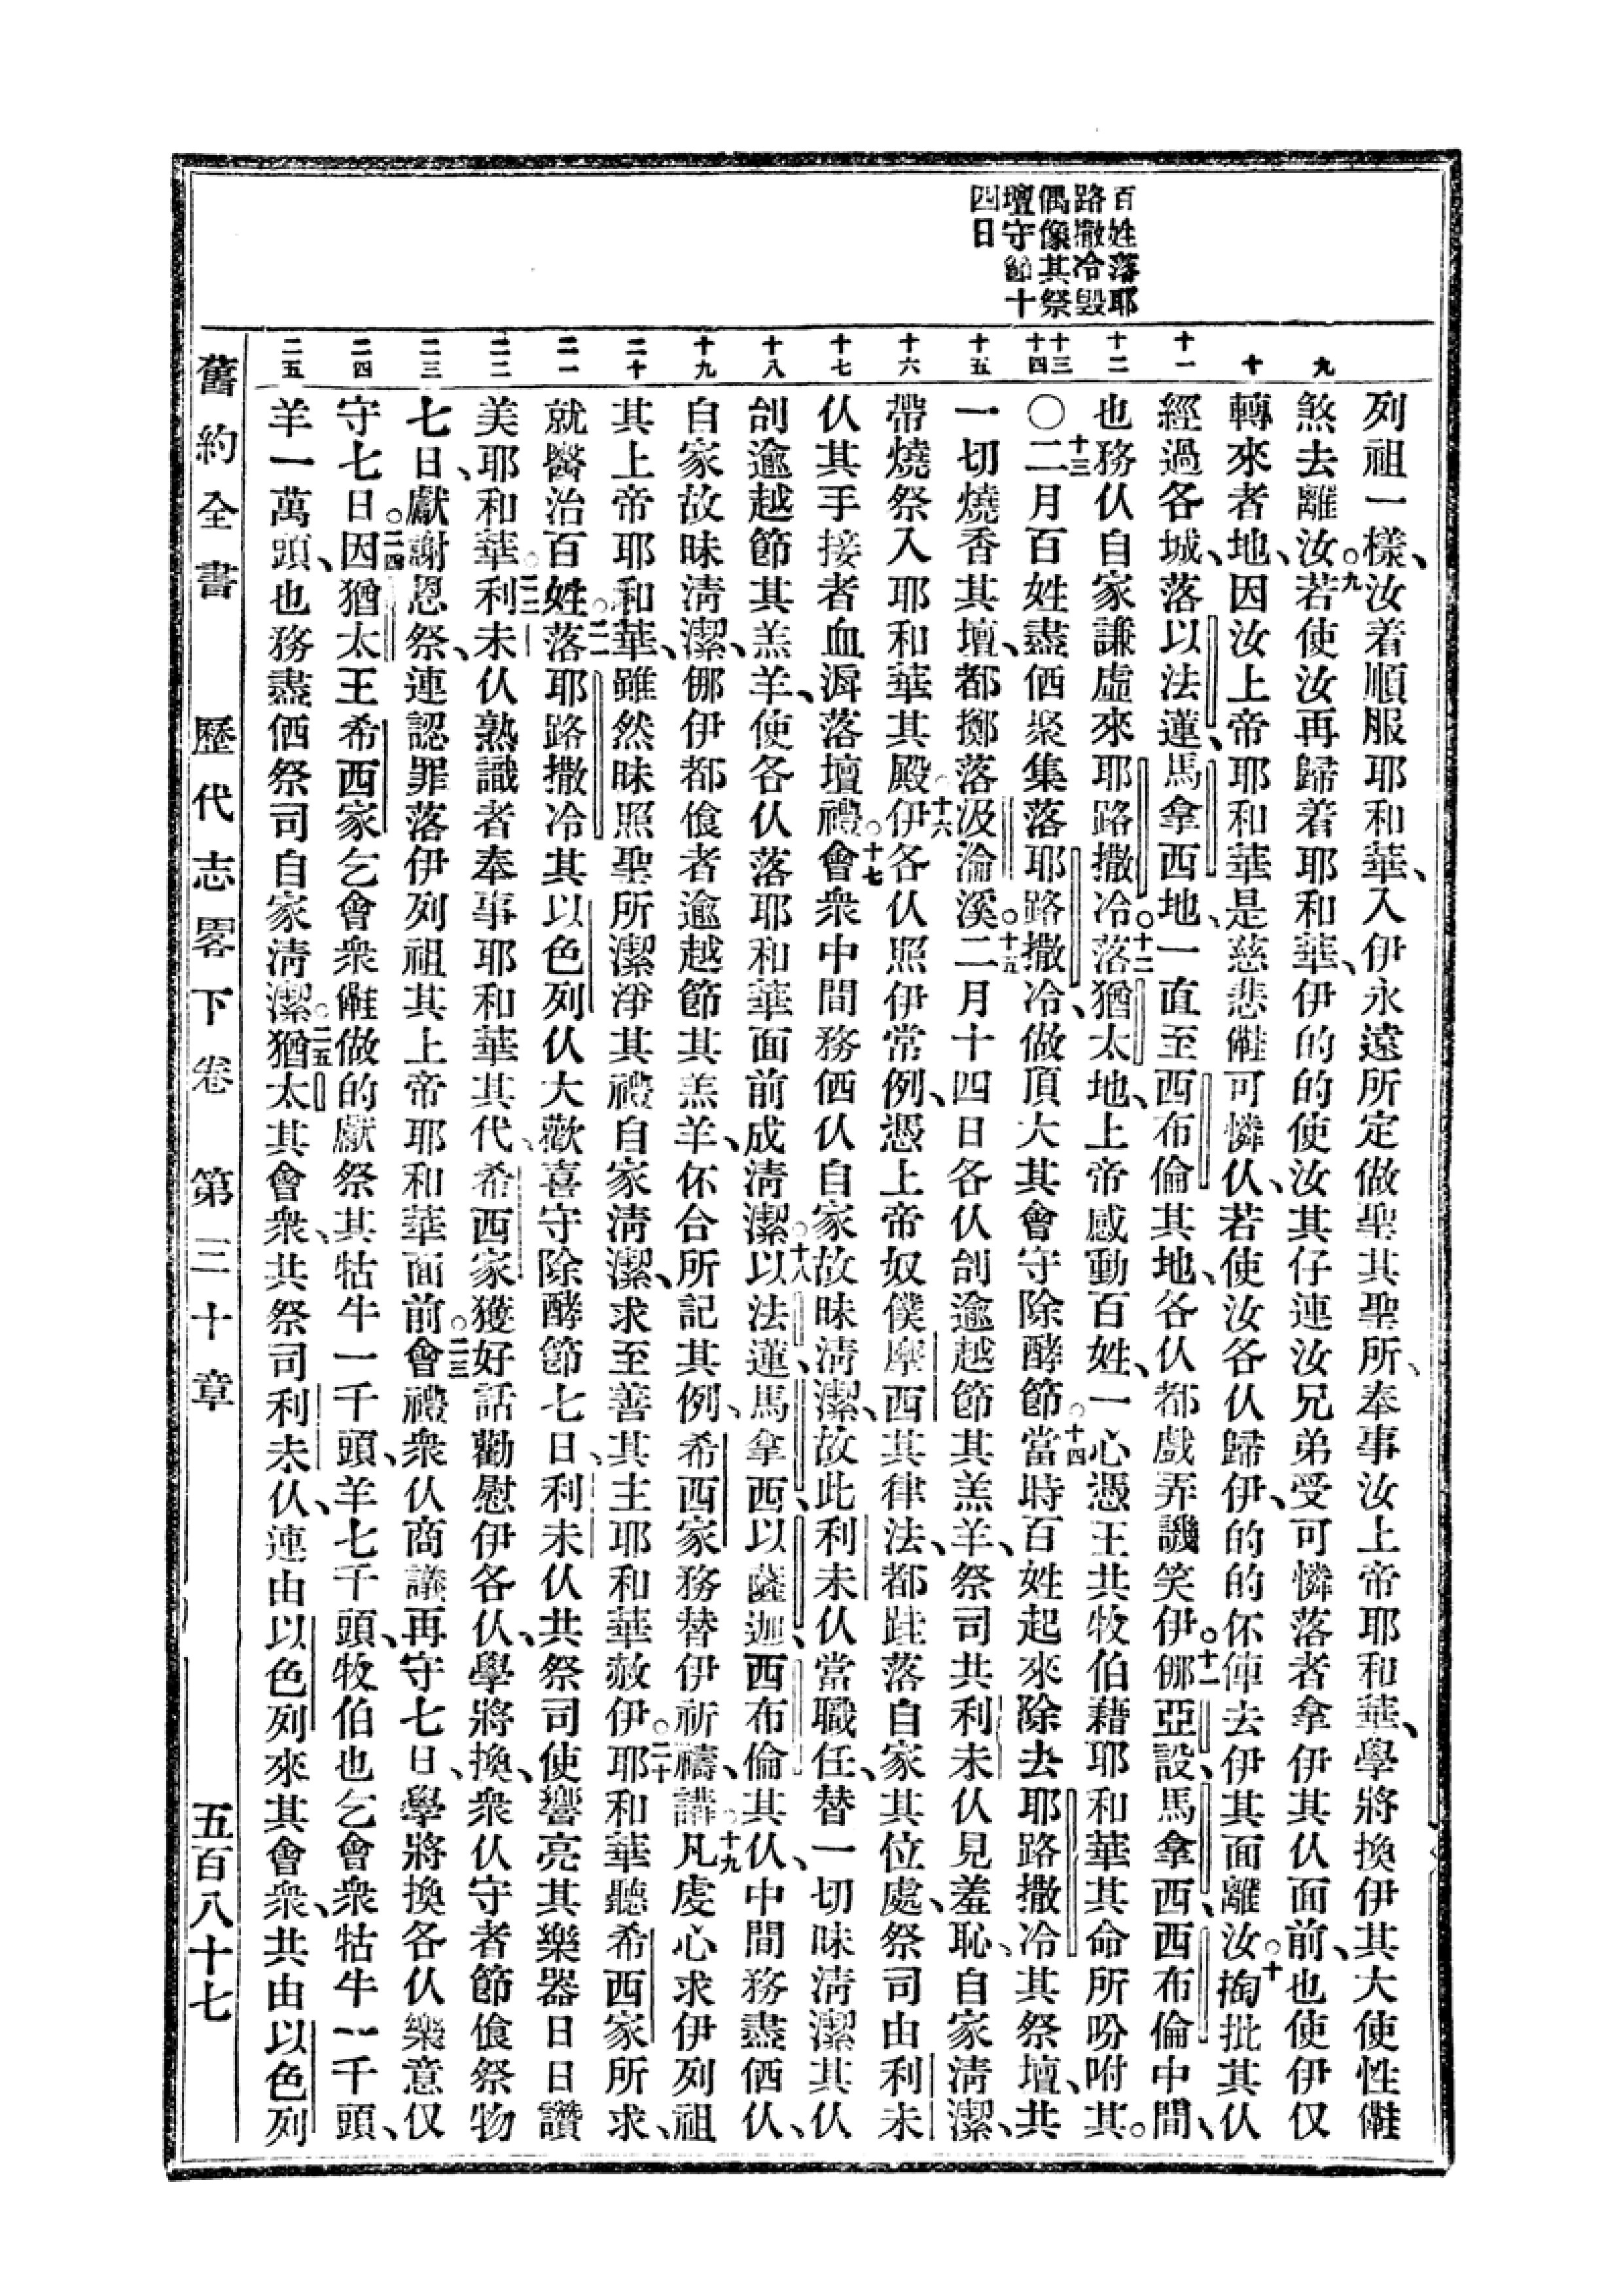 百姓落耶
路撒冷毀
偶像其祭
壇守節十
四日
九
十
十一
十二
十三
十四
十五
十六
十七
十八
十九
二十
二一
二二
二三
二四
二五
列祖一樣、汝着順服耶和華、入伊永遠所定做聖其聖所、奉事汝上帝耶和華、學將換伊其大使性㒕
煞去離汝。九若使汝再歸着耶和華、伊的的使汝其仔連汝兄弟受可憐落者拿伊其仈面前、也使伊仅
轉來者地、因汝上帝耶和華是慈悲㒕可憐仈、若使汝各仈歸伊、的的伓使去伊其面離汝。十掏批其仈
經過各城、落以法蓮、馬拿西地、一直至西布倫其地、各仈都戲弄譏笑伊。十一㑚亞設、馬拿西、西布倫中間、
也務仈自家謙虛來耶路撒冷。十二落猶太地、上帝感動百姓、一心憑王共牧伯藉耶和華其命所吩咐其。
〇十三二月百姓盡価聚集落耶路撒冷、做頂大其會守除酵節。十四當時百姓起來除去耶路撒冷其祭壇、共
一切燒香其壇、都擲落汲淪溪。十五二月十四日各仈刣逾越節其羔羊、祭司共利未仈見羞恥、自家清潔、
帶燒祭入耶和華其殿。十六伊各仈照伊常例、憑上帝奴僕摩西其律法、都跬落自家其位處、祭司由利未
仈其手接者血㴙落壇禮。十七會衆中間務価仈自家故昧清潔、故此利未仈當職任、替一切昧清潔其仈
刣逾越節其羔羊、使各仈落耶和華面前成清潔。十八以法蓮、馬拿西、以薩迦、西布倫其仈、中間務盡価仈、
自家故昧清潔、㑚伊都飡者逾越節其羔羊、伓合所記其例、希西家務替伊祈禱、講。十九凡虔心求伊列祖
其上帝耶和華、雖然昧照聖所潔淨其禮自家清潔、求至善其主耶和華赦伊。二十耶和華聽希西家所求、
就醫治百姓。二一落耶路撒冷其以色列仈大歡喜守除酵節七日、利未仈共祭司使響亮其樂器日日讚
美耶和華。二二利未仈熟識者奉事耶和華其代、希西家獲好話勸慰伊各仈、學將換、衆仈守者節飡祭物
七日、獻謝恩祭、連認罪落伊列祖其上帝耶和華面前。二三會禮衆仈商議再守七日、學將換各仈樂意仅
守七日。二四因猶太王希西家乞會衆㒕做的獻祭其牯牛一千頭、羊七千頭、牧伯也乞會衆牯牛一千頭、
羊一萬頭、也務盡価祭司自家清潔。二五猶太其會衆、共祭司利未仈、連由以色列來其會衆、共由以色列
舊約全書　歷代志畧下卷　第三十章　五百八十七